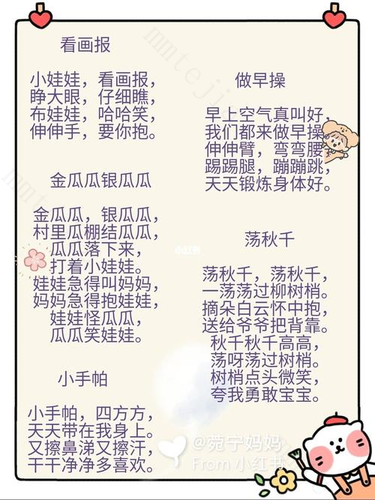 看画报
小娃娃，看画报，
睁大眼，仔细瞧，
布娃娃，哈哈笑，
伸伸手，要你抱。
金瓜瓜银瓜瓜
金瓜瓜，银瓜瓜，
村里瓜棚结瓜瓜，
瓜瓜落下来，
打着小娃娃。
娃娃急得叫妈妈，
妈妈急得抱娃娃，
娃娃怪瓜瓜，
瓜瓜笑娃娃。
小手帕
小手帕，四方方，
天天带在我身上。
又擦鼻涕又擦汗，
干干净净多喜欢。
做早操
早上空气真叫好，
我们都来做早操
伸伸臂，弯弯腰
踢踢腿，蹦蹦跳，
天天锻炼身体好。
荡秋千
荡秋千，荡秋千，
一荡荡过柳树梢。
摘朵白云怀中抱，
送给爷爷把背靠。
秋千秋千高高，
荡呀荡过树梢。
树梢点头微笑，
夸我勇敢宝宝。
@宛宁妈妈
From 小红书